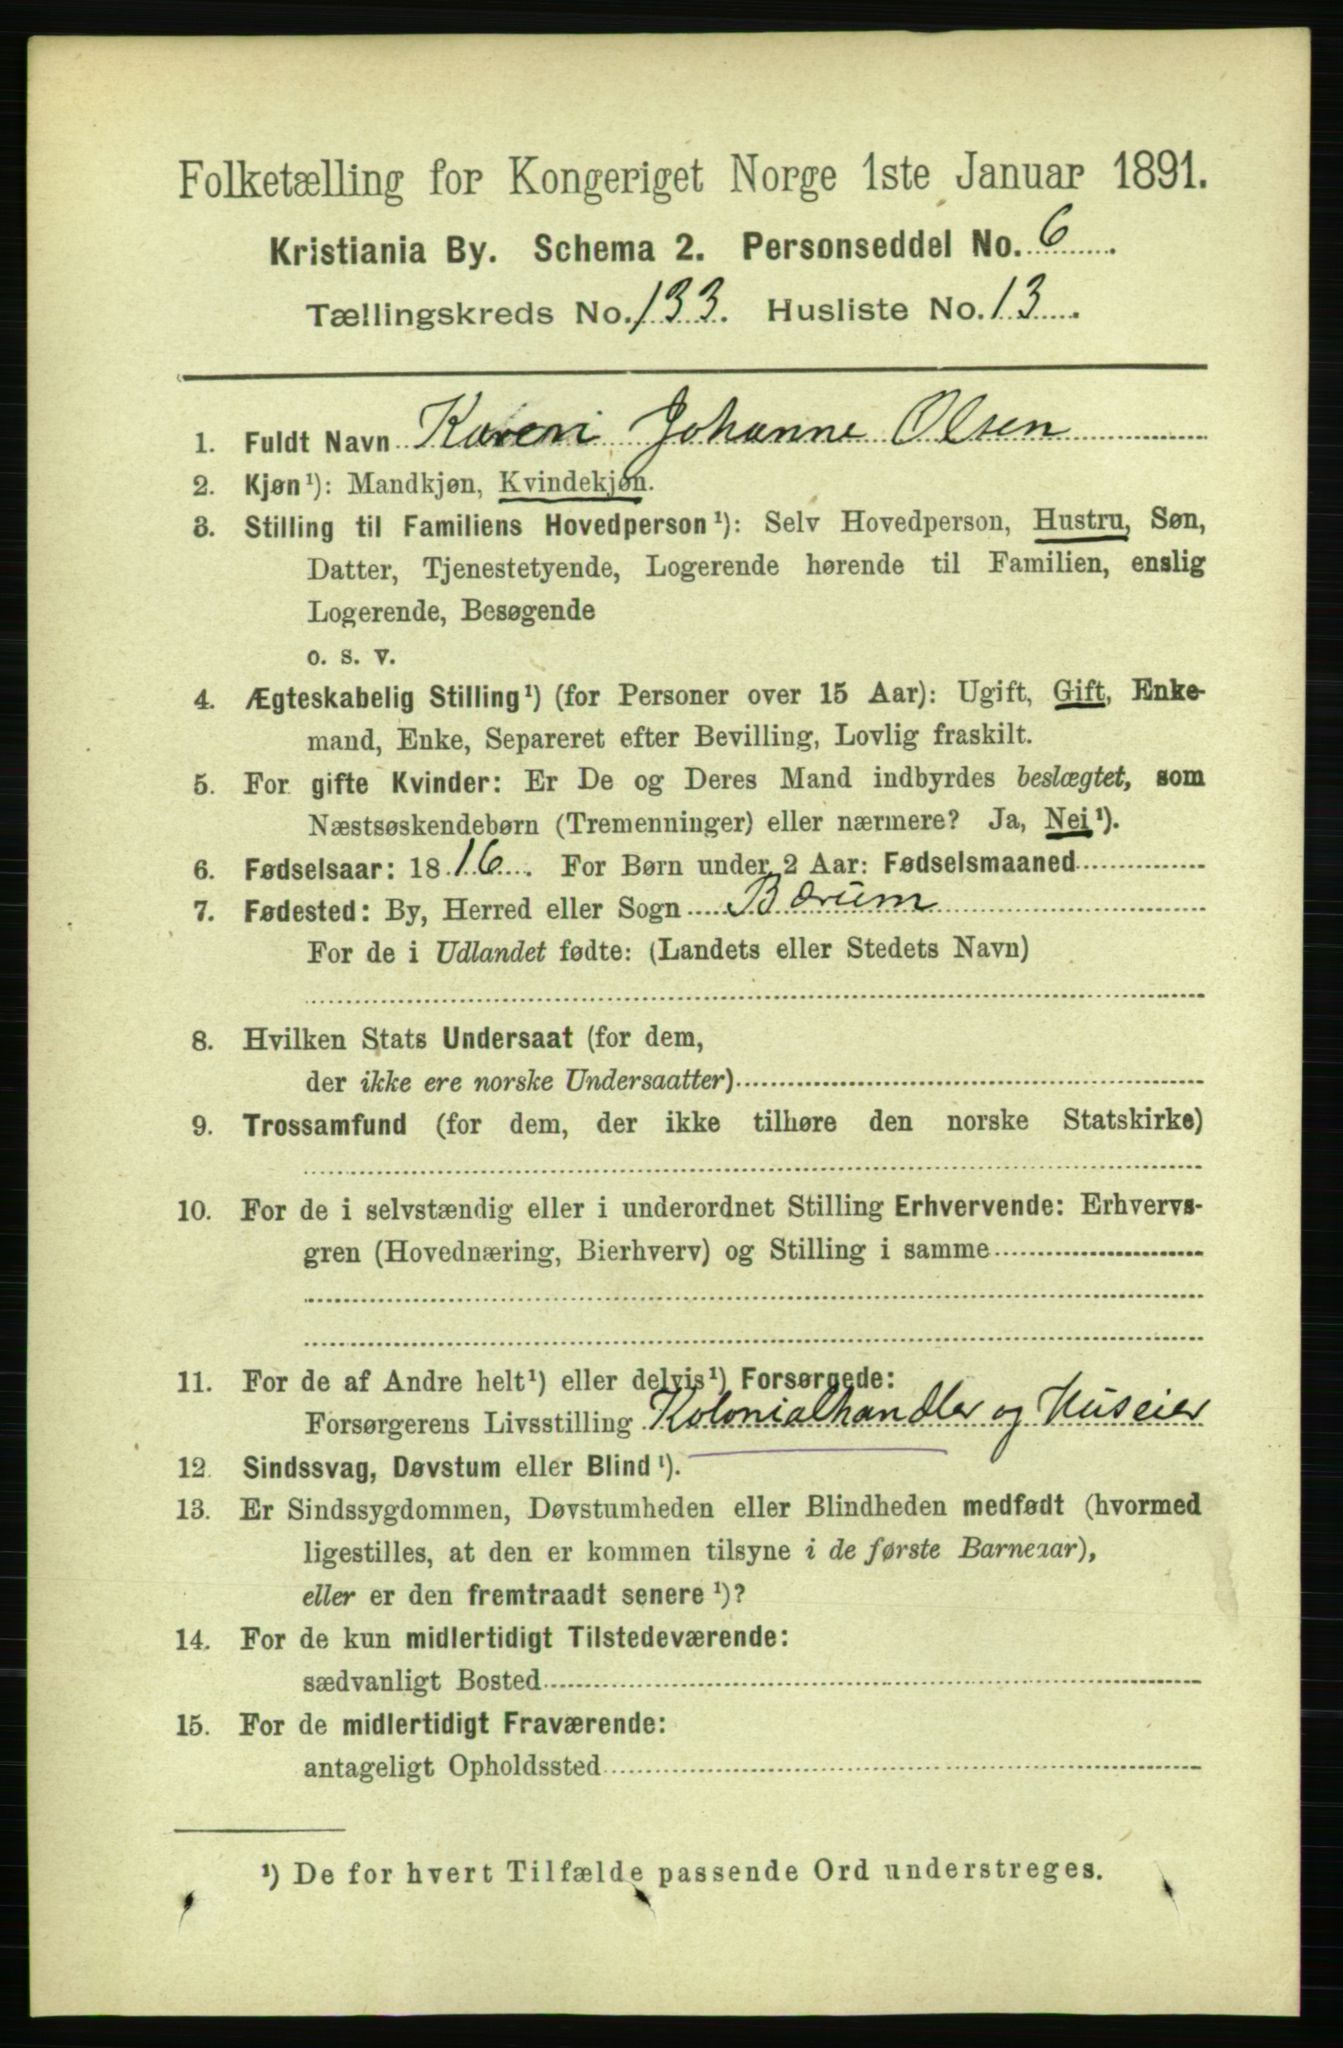 Folketælling for Kongeriget Norge 1ste Januar 1891.
Kristiania By. Schema 2. Personseddel No. 6
Tællingskreds No. 133. Husliste No. 13.
1. Fuldt Navn Karen Johanne Olsen
2. Kjøn¹): Mandkjøn, Kvindekjøn.
3. Stilling til Familiens Hovedperson¹): Selv Hovedperson, Hustru, Søn,
Datter, Tjenestetyende, Logerende hørende til Familien, enslig
Logerende, Besøgende
o. s. v.
4. Ægteskabelig Stilling¹) (for Personer over 15 Aar): Ugift, Gift, Enke-
mand, Enke, Separeret efter Bevilling, Lovlig fraskilt.
5. For gifte Kvinder: Er De og Deres Mand indbyrdes beslægtet, som
Næstsøskendebørn (Tremenninger) eller nærmere? Ja, Nei¹).
6. Fødselsaar: 1816. For Børn under 2 Aar: Fødselsmaaned
7. Fødested: By, Herred eller Sogn Bærum
For de i Udlandet fødte: (Landets eller Stedets Navn)
8. Hvilken Stats Undersaat (for dem,
der ikke ere norske Undersaatter)
9. Trossamfund (for dem, der ikke tilhøre den norske Statskirke)
10. For de i selvstændig eller i underordnet Stilling Erhvervende: Erhvervs-
gren (Hovednæring, Bierhverv) og Stilling i samme
11. For de af Andre helt¹) eller delvis¹) Forsørgede:
Forsørgerens Livsstilling Kolonialhandler og Huseier
12. Sindssvag, Døvstum eller Blind¹).
13. Er Sindssygdommen, Døvstumheden eller Blindheden medfødt (hvormed
ligestilles, at den er kommen tilsyne i de første Barneaar),
eller er den fremtraadt senere¹)?
14. For de kun midlertidigt Tilstedeværende:
sædvanligt Bosted
15. For de midlertidigt Fraværende:
antageligt Opholdssted
¹) De for hvert Tilfælde passende Ord understreges.